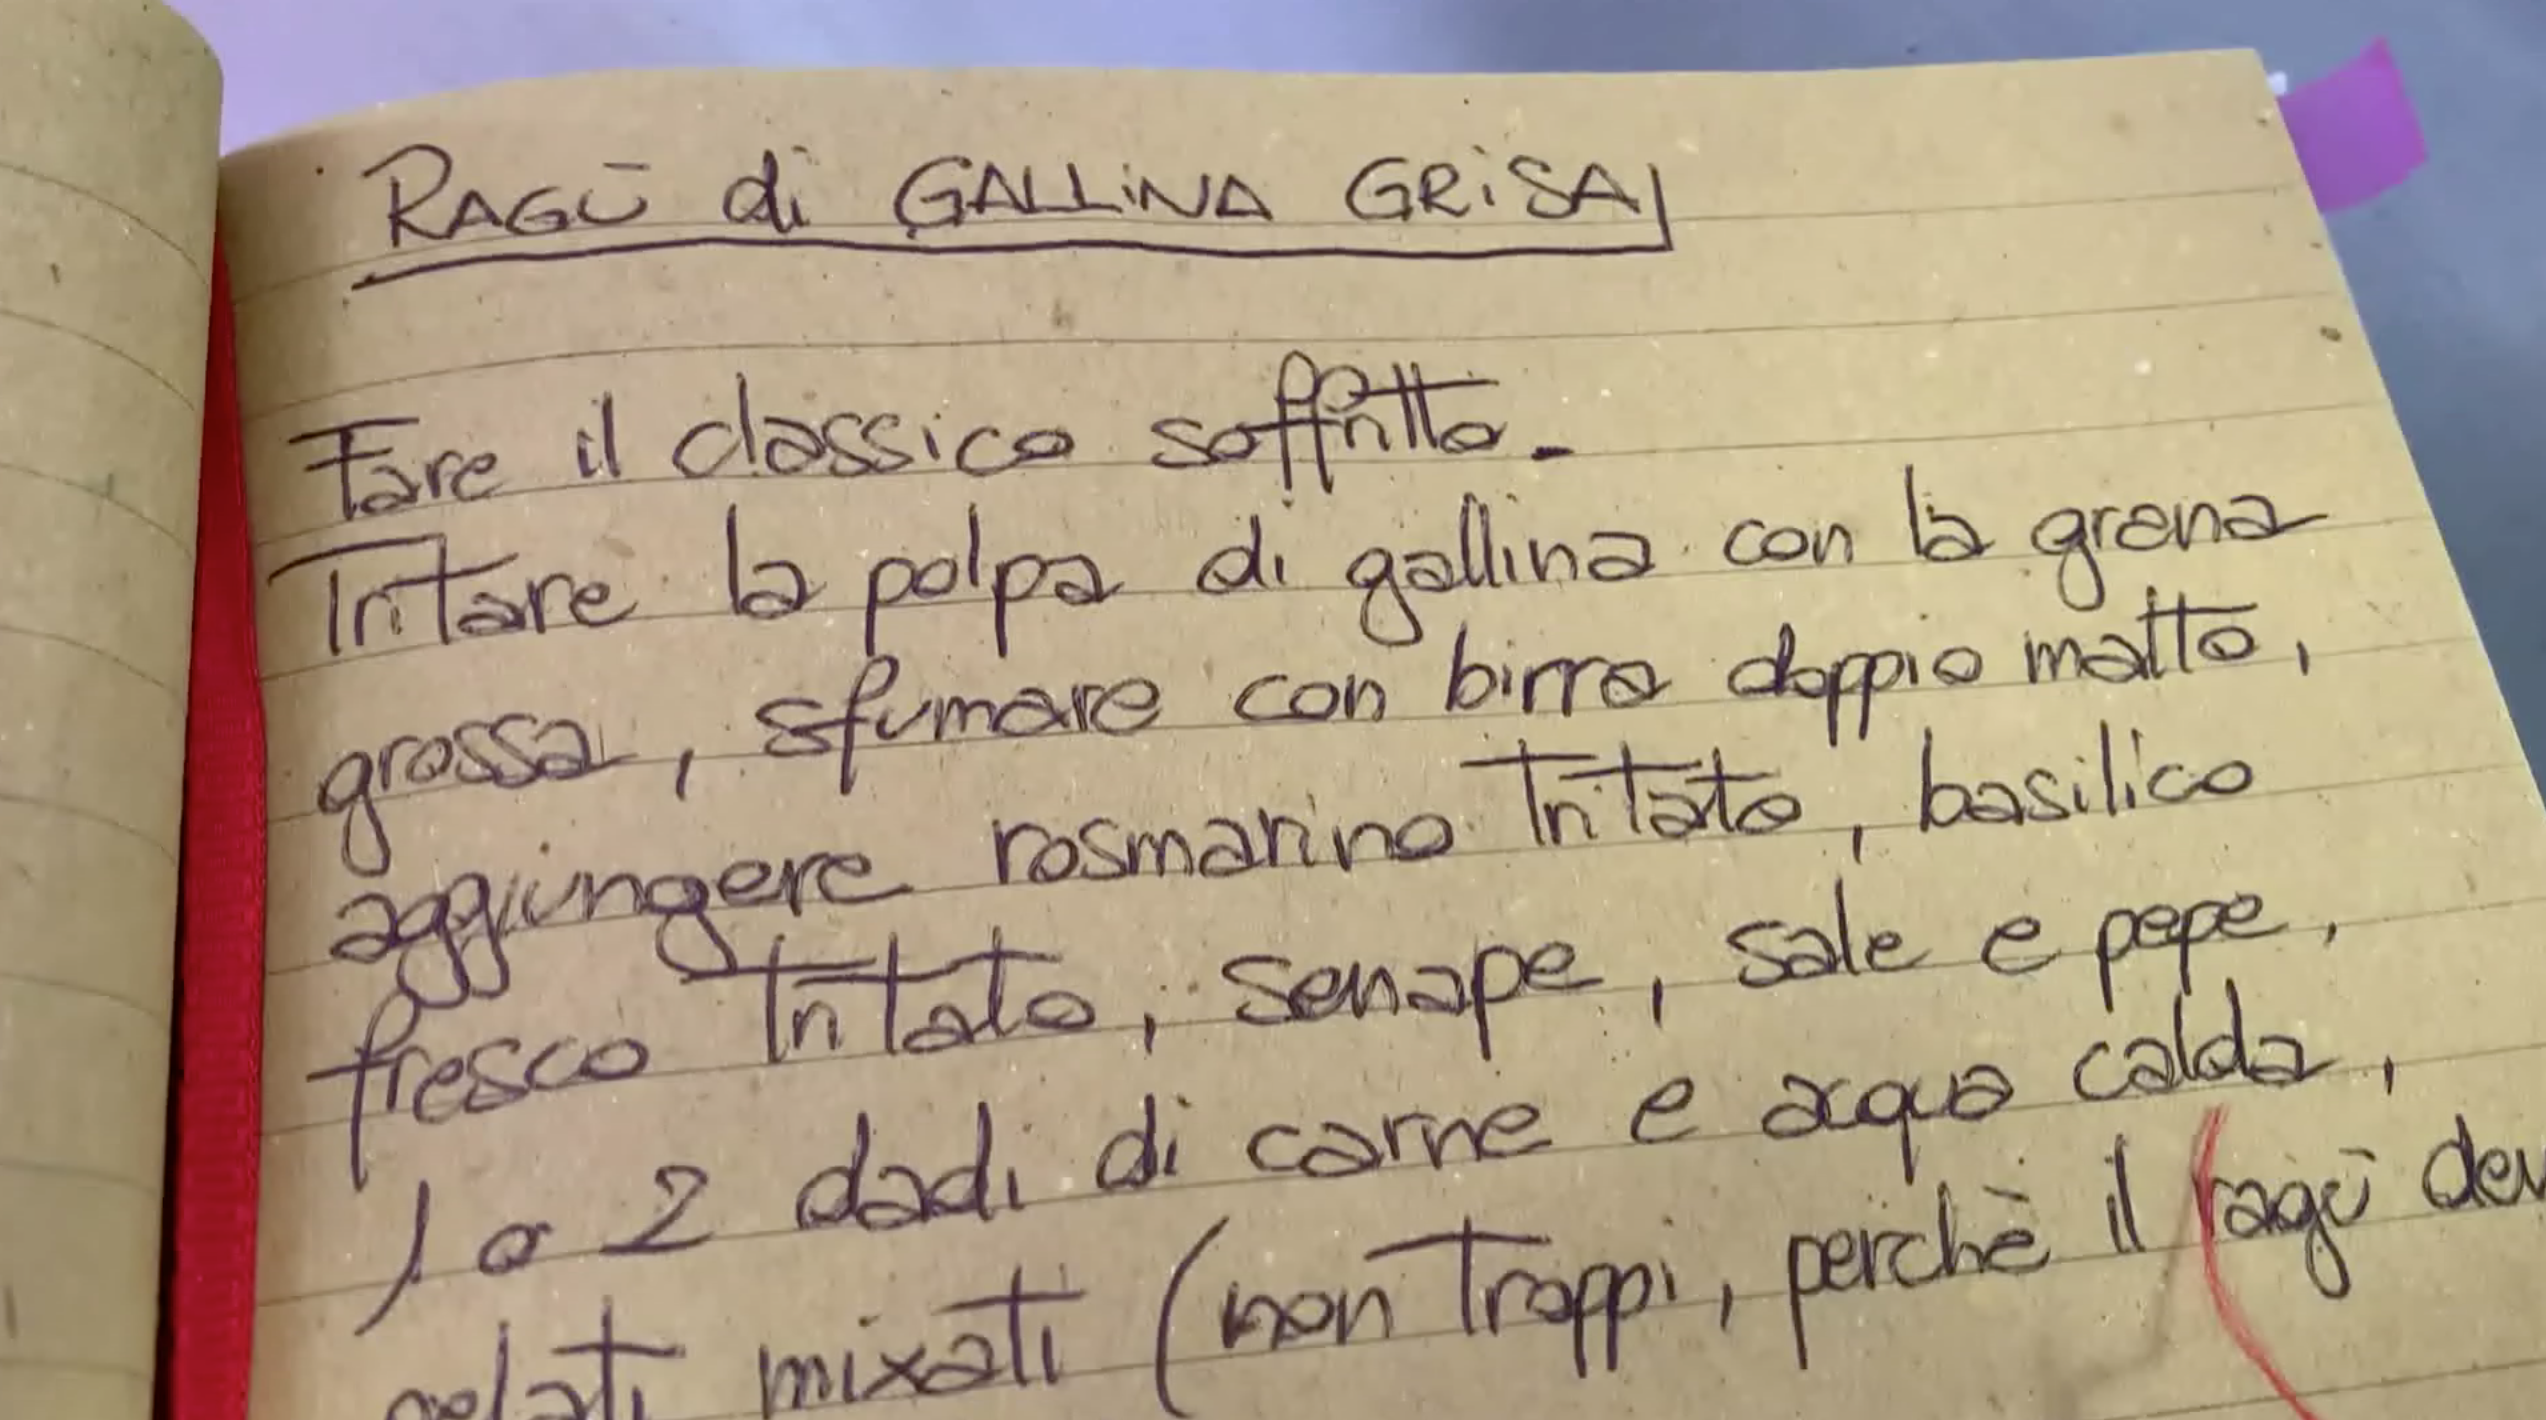 RAGÙ di GALLINA GRISA
Fare il classico soffritto.
Tritare la polpa di gallina con la grana
grossa, sfumare con birra doppio malto,
aggiungere rosmarino tritato, basilico
fresco tritato, senape, sale e pepe,
1 o 2 dadi di carne e acqua calda,
pelati mixati (non troppi, perchè il ragù dev